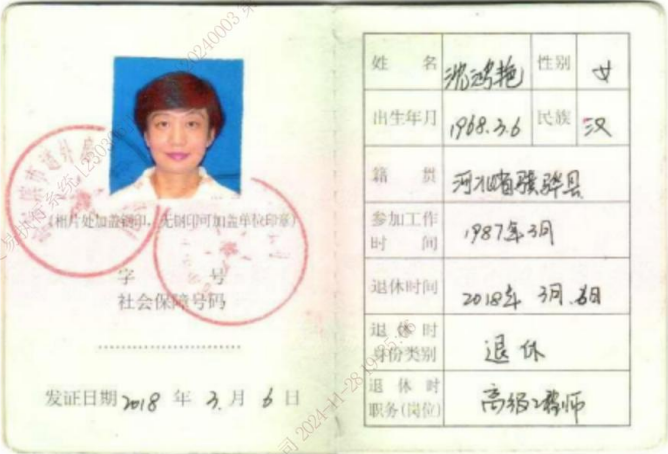 (相片处加盖钢印,无钢印可加盖单位印章)
字 号
社会保障号码
发证日期 2018 年 3 月 6 日
姓 名 沈鸿艳 性别 女
出生年月 1968.3.6 民族 汉
籍 贯 河北省 县
参加工作时间 1987年3月
退休时间 2018年 3月 6日
退休时身份类别 退休
退休时职务(岗位) 高级工程师